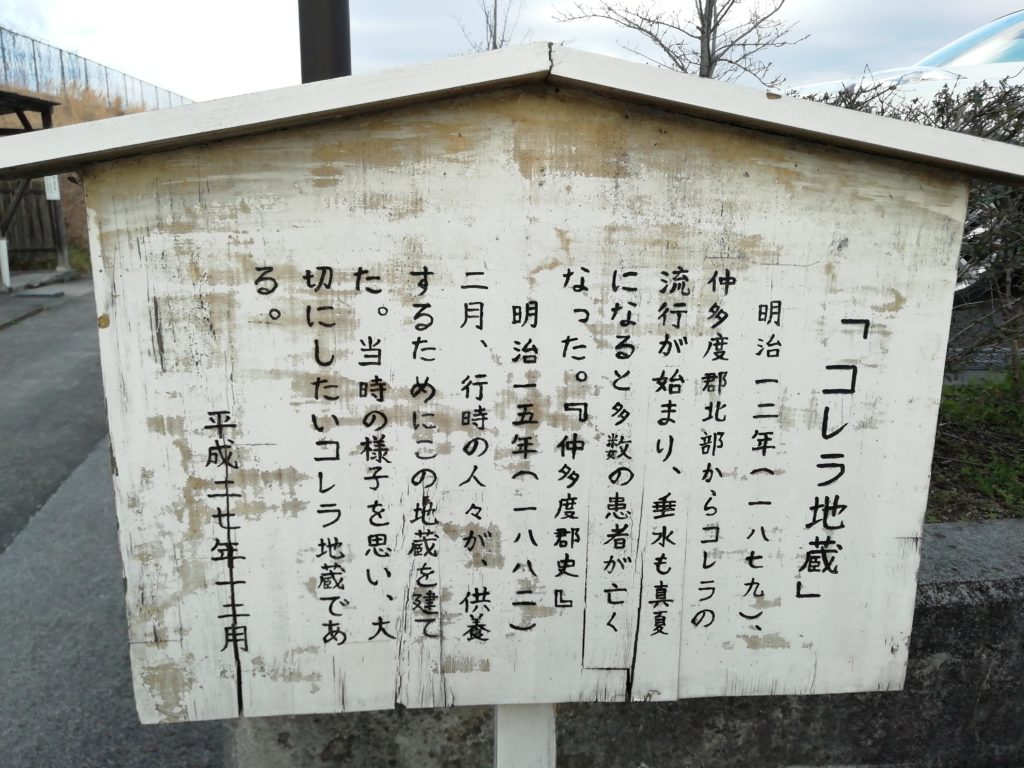 「コレラ地蔵」
明治一二年(一八七九)、
仲多度郡北部からコレラの
流行が始まり、垂水も真夏
になると多数の患者が亡く
なった。『仲多度郡史』
明治一五年(一八八二)
二月、行時の人々が、供養
するためにこの地蔵を建て
た。当時の様子を思い、大
切にしたいコレラ地蔵であ
る。
平成二七年十二月